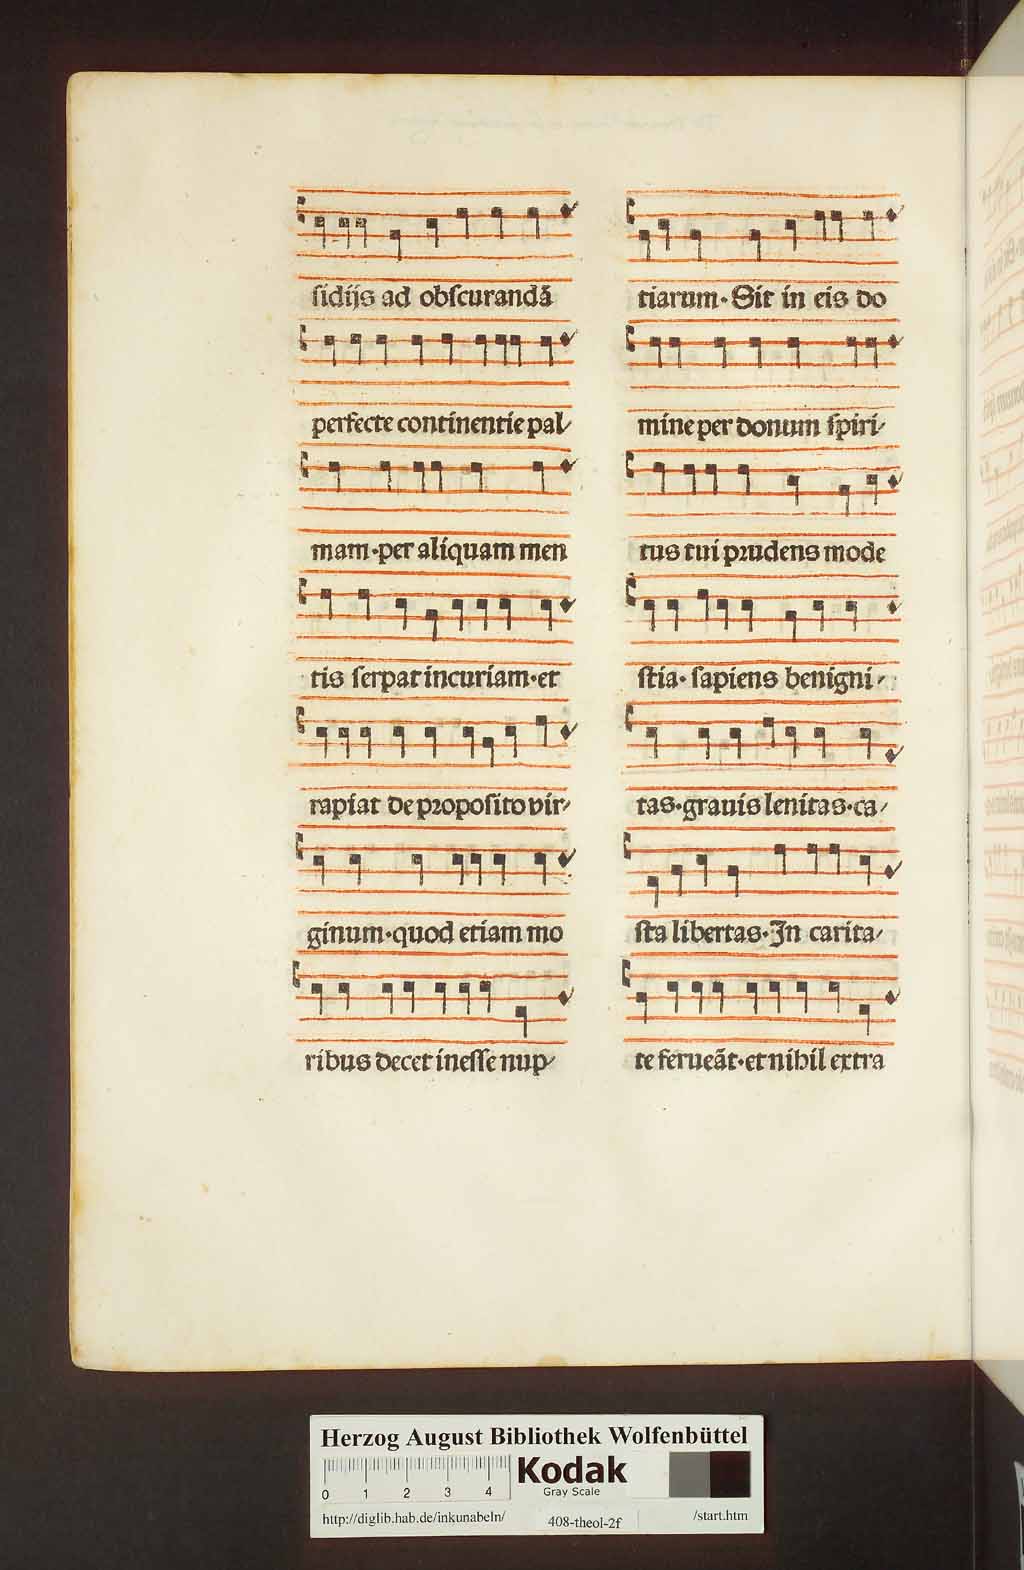 sidijs ad obscurandā
perfecte continentie pal⸗
mam·per aliquam men
tis serpat incuriam·et
rapiat de proposito vir⸗
ginum·quod etiam mo
ribus decet inesse nup⸗
tiarum·Sit in eis do
mine per donum spiri⸗
tus tui prudens mode
stia·sapiens benigni⸗
tas·grauis lenitas·ca⸗
sta libertas·In carita⸗
te ferueāt·et nihil extra
Herzog August Bibliothek Wolfenbüttel
0 1 2 3 4
Kodak
Gray Scale
http://diglib.hab.de/inkunabeln/ 408-theol-2f /start.htm